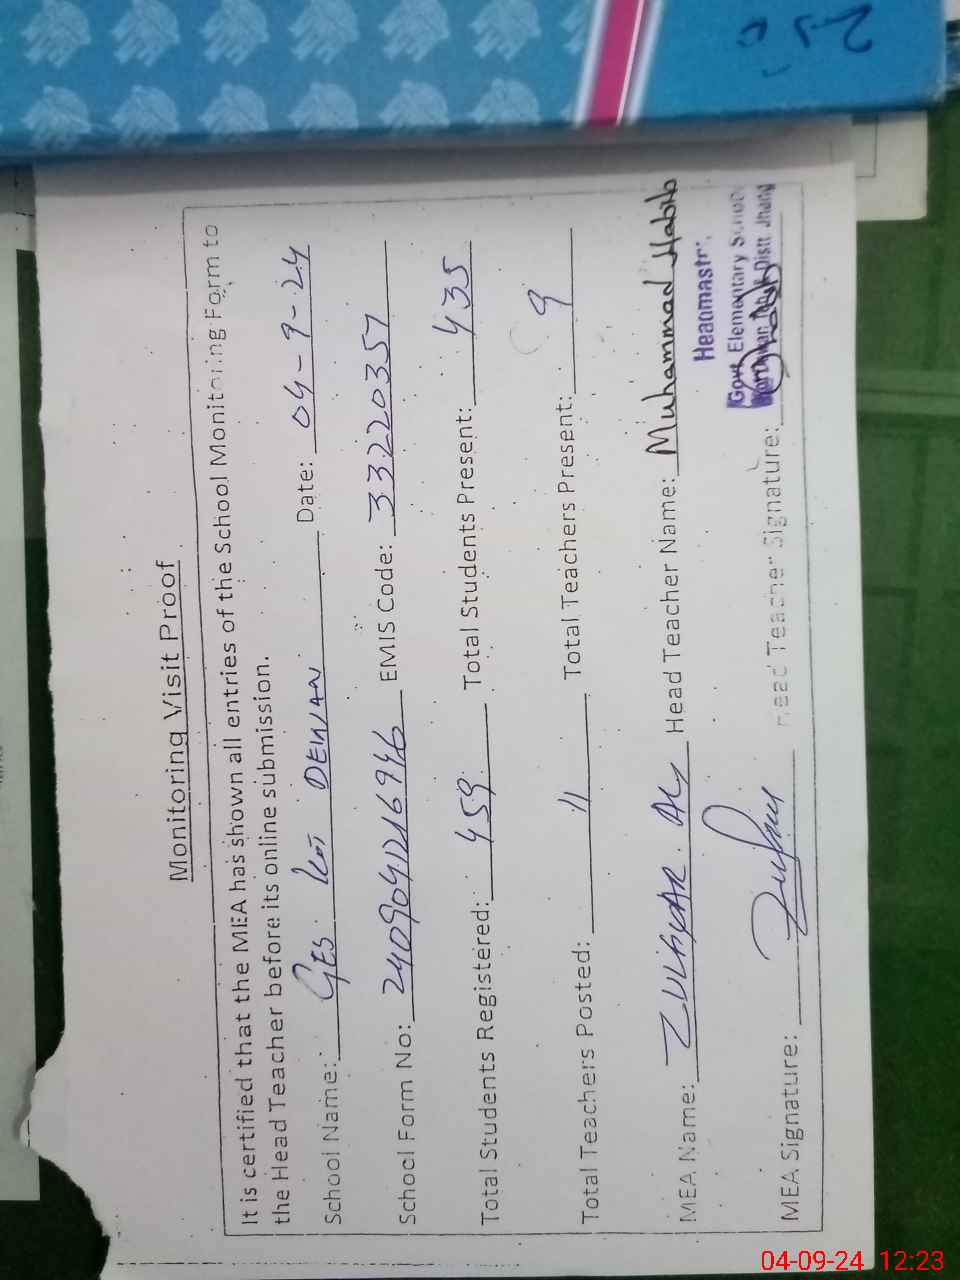 Monitoring Visit Proof
It is certified that the MEA has shown all entries of the School Monitoring Form to
the Head Teacher before its online submission.
School Name: GES. Kot DEWAN Date: 04-9-24
School Form No: EMIS Code: 33220357
Total Students Registered: 459 Total Students Present: 435
Total Teachers Posted: 11 Total Teachers Present: 9
MEA Name: ZULIFQAR. ALY Head Teacher Name: Muhammad Habib
Headmaster
Govt Elementary School
Distt Jhang
MEA Signature: Head Teacher Signature:
04-09-24 12:23